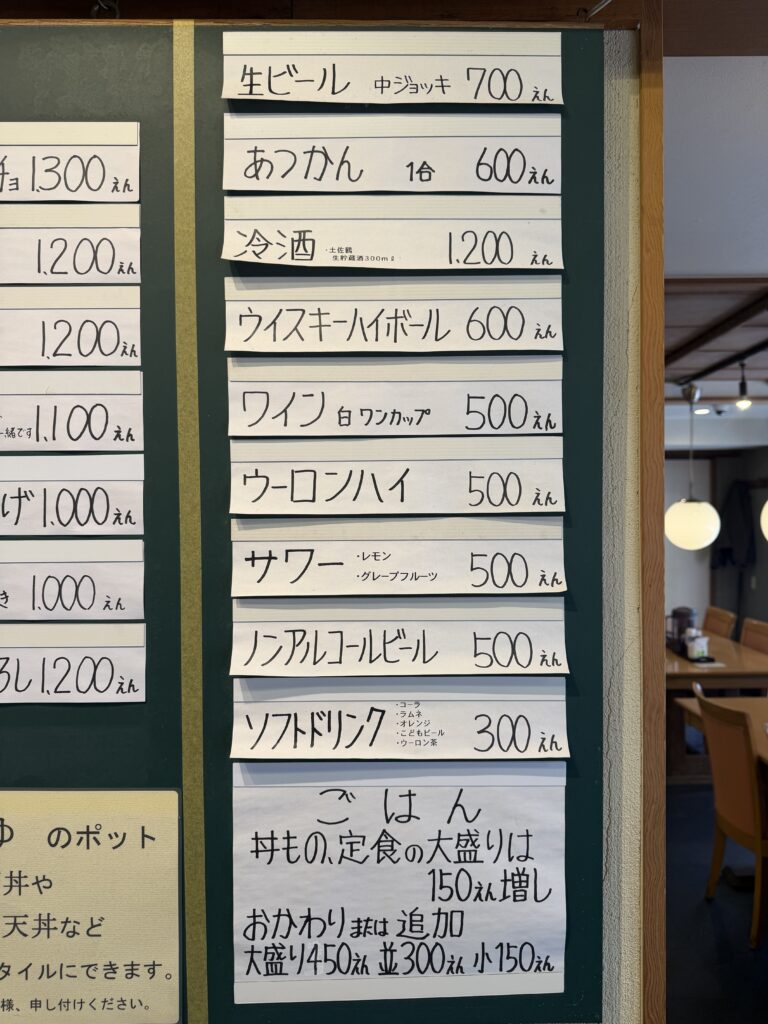 チョ 1,300えん
1,200えん
1,200えん
一緒です 1,100えん
げ 1,000えん
き 1,000えん
ろし 1,200えん
ゆ のポット
丼や
天丼など
タイルにできます。
様、申し付けください。
生ビール 中ジョッキ 700えん
あつかん 1合 600えん
冷酒 ・土佐鶴 1,200えん
生貯蔵酒300mℓ
ウイスキーハイボール 600えん
ワイン 白 ワンカップ 500えん
ウーロンハイ 500えん
サワー ・レモン 500えん
・グレープフルーツ
ノンアルコールビール 500えん
ソフトドリンク ・コーラ 300えん
・ラムネ
・オレンジ
・こどもビール
・ウーロン茶
ごはん
丼もの、定食の大盛りは
150えん増し
おかわりまたは 追加
大盛り450えん 並300えん 小150えん